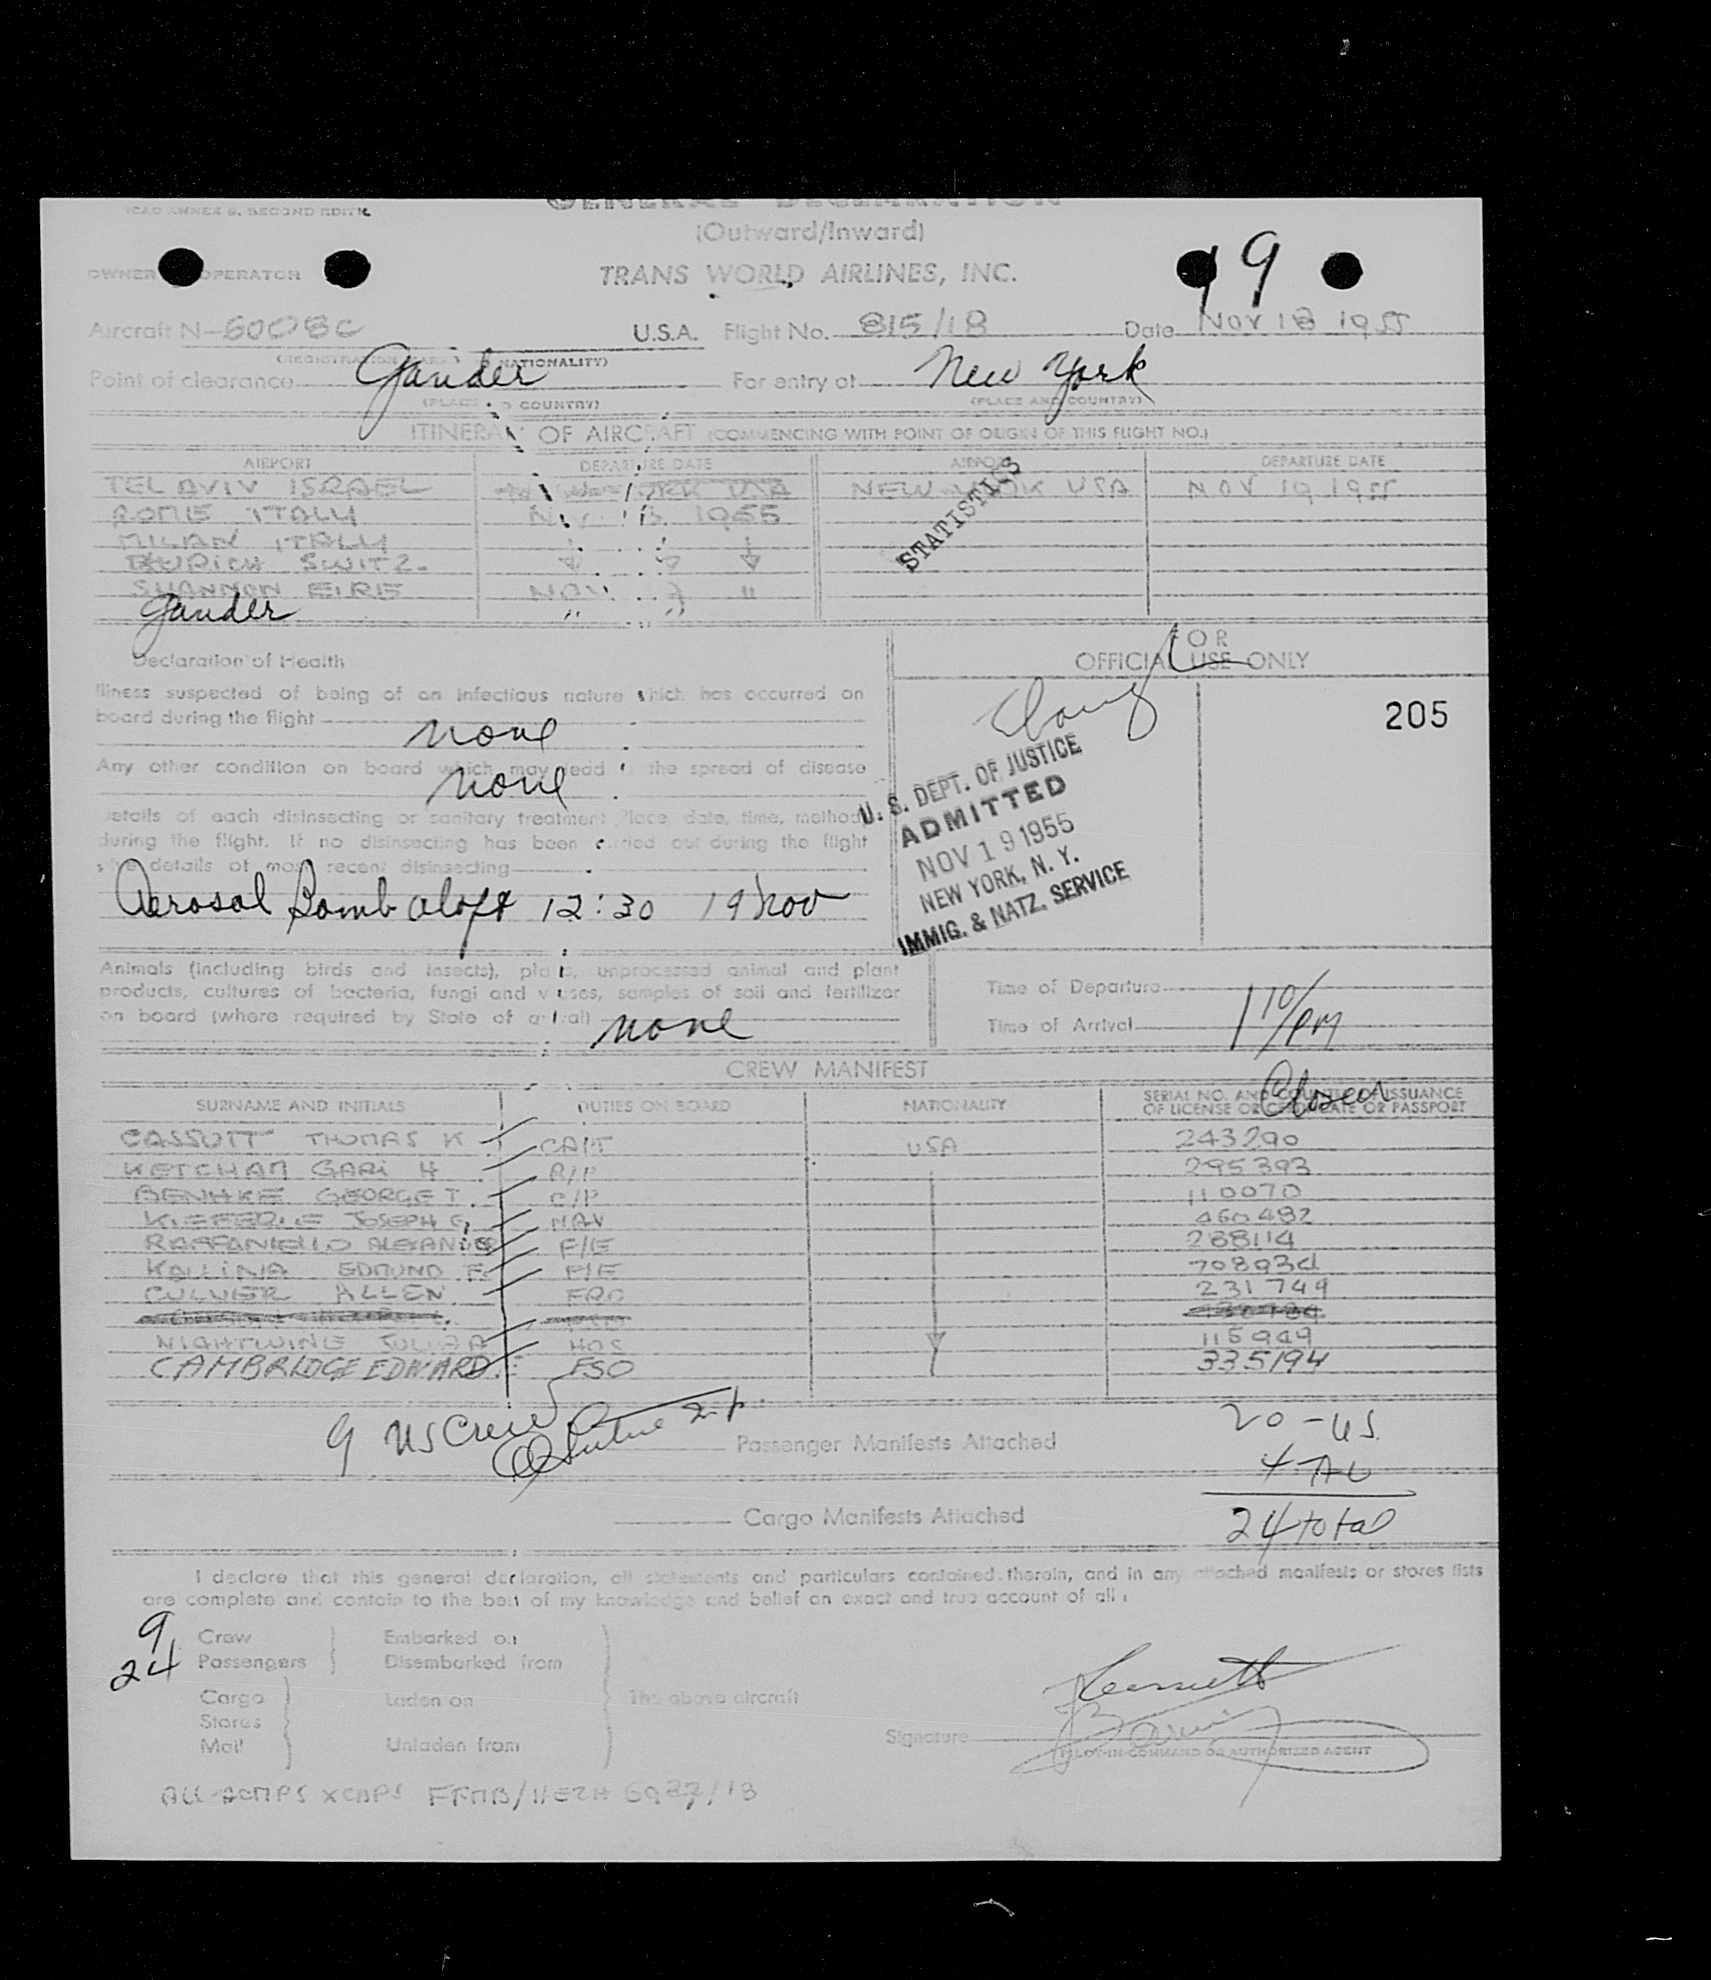 ICAO ANNEX 9, SECOND EDITI
GENERAL DECLARATION
(Outward/Inward)
OWNER OPERATOR
TRANS WORLD AIRLINES, INC.
19
Aircraft N-6008C U.S.A. Flight No. 815/18 Date NOV 18 1955
(REGISTRATION NATIONALITY)
Point of clearance Gander For entry at New York
(PLACE COUNTRY) (PLACE AND COUNTRY)
ITINERA OF AIRCRAFT (COMMENCING WITH POINT OF ORIGIN OF THIS FLIGHT NO.)
AIRPORT DEPARTURE DATE AIRPORT DEPARTURE DATE
TEL AVIV ISRAEL NEW YORK USA NOV 19 1955
ROME ITALY 1955
MILAN ITALY
ZURICH SWITZ.
SHANNON EIRE NOV "
Gander " "
STATISTICS
Declaration of Health
FOR
OFFICIAL USE ONLY
Illness suspected of being of an infectious nature which has occurred on
board during the flight
none
205
Any other condition on board which may lead the spread of disease
none
U. S. DEPT. OF JUSTICE
ADMITTED
NOV 19 1955
NEW YORK, N. Y.
IMMIG. & NATZ. SERVICE
Details of each disinsecting or sanitary treatment place, date, time, method
during the flight. If no disinsecting has been carried out during the flight
give details of most recent disinsecting
Aerosol Bomb aloft 12:30 19 Nov
Animals (including birds and insects), plants, unprocessed animal and plant
products, cultures of bacteria, fungi and viruses, samples of soil and fertilizer
on board (where required by State of arrival) none
Time of Departure
Time of Arrival 1 10/PM
CREW MANIFEST
SURNAME AND INITIALS DUTIES ON BOARD NATIONALITY SERIAL NO. AND COUNTRY OF ISSUANCE
OF LICENSE OR CERTIFICATE OR PASSPORT
CASSUTT THOMAS K CAPT USA 243290
KETCHAM GARI H R/P 295393
BENHKE GEORGE T. C/P 110070
KIEFERLE JOSEPH G. NAV 460482
RAFFANIELLO ALEXANDER F/E 288114
KALLINA EDMUND F. P/E
CULVER ALLEN 231749
NIGHTWINE HOS 115949
CAMBRIDGE EDWARD FSO 335194
9 US Crew
Passenger Manifests Attached
20 - US
4 AL
24 total
Cargo Manifests Attached
I declare that this general declaration, all statements and particulars contained therein, and in any attached manifests or stores lists
are complete and contain to the best of my knowledge and belief an exact and true account of all
9 Crew Embarked on
24 Passengers Disembarked from
Cargo Laden on The above aircraft
Stores
Mail Unladen from
Signature
PILOT-IN-COMMAND OR AUTHORIZED AGENT